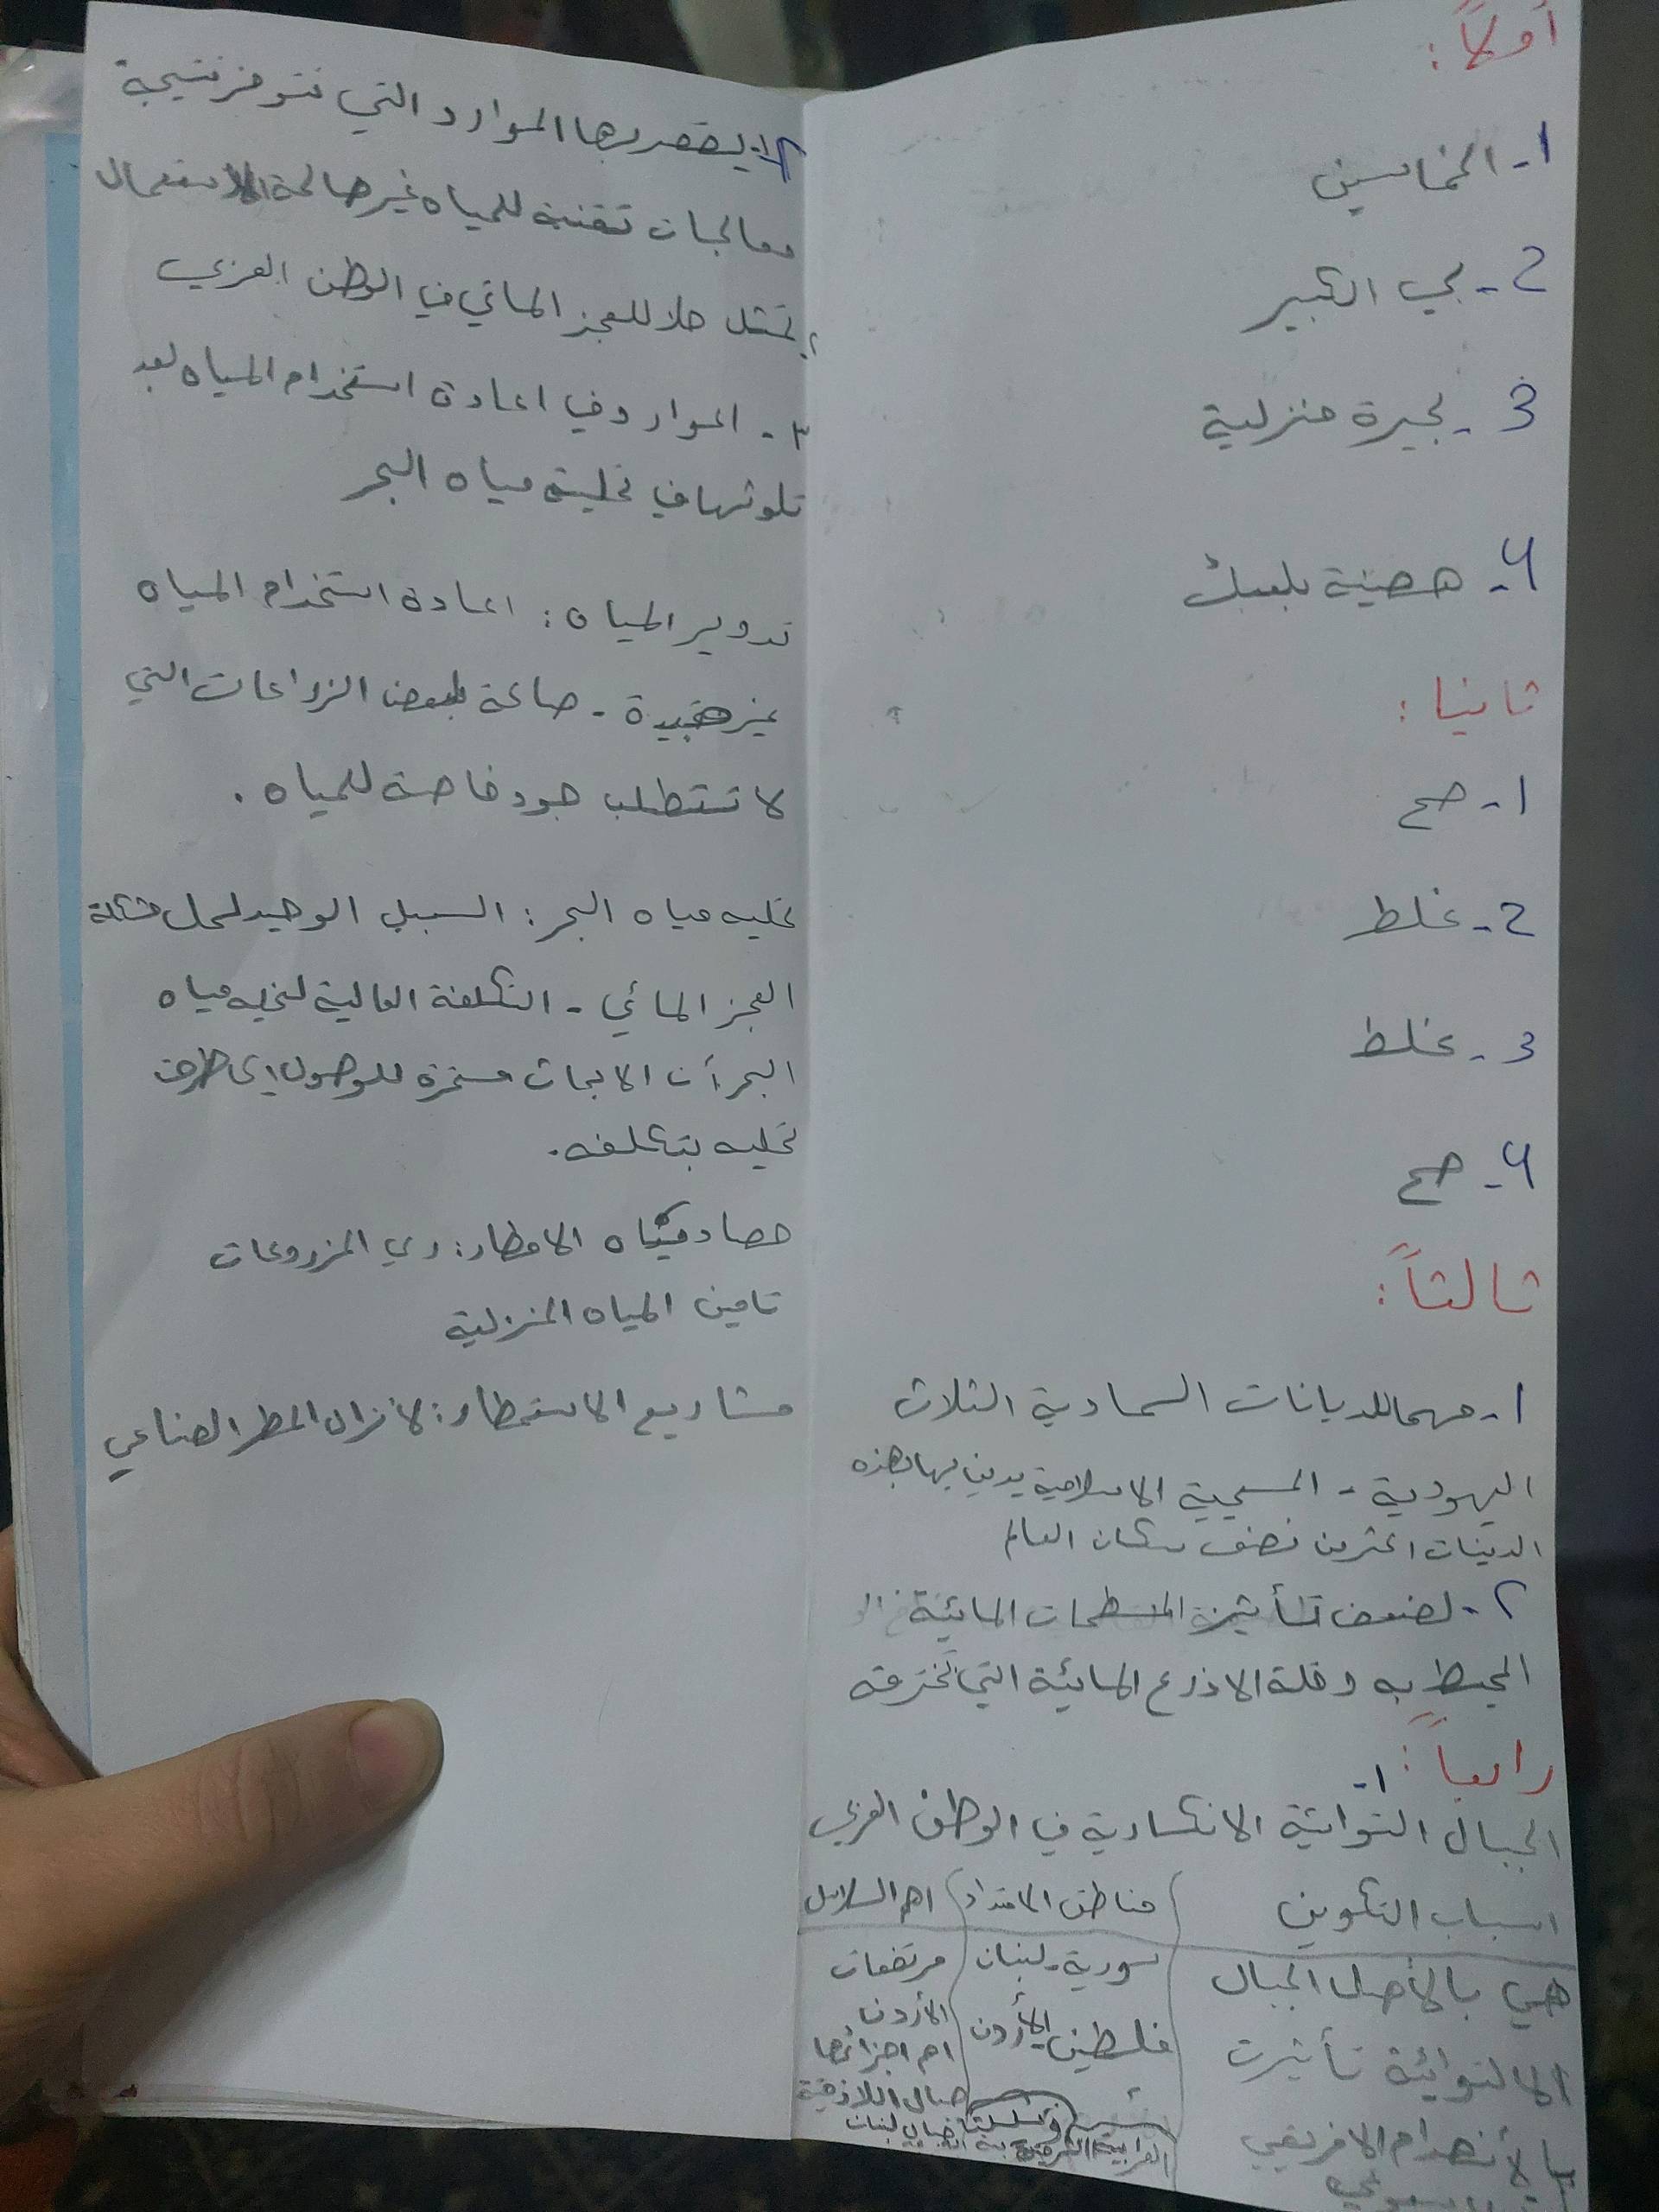 أولاً:
1- الخماسين
2- لجي الكبير
3- بحيرة منزلية
4- هضبة بعلبك
ثانيا:
1- صح
2- غلط
3- غلط
4- صح
ثالثاً:
1- مهما للديانات السماوية الثلاث
اليهودية - المسيحية الاسلامية يدين بها بهذه
الدينات اكثر من نصف سكان العالم
٢- لضعف تأثير المسطحات المائية
المحيط به وقلة الاذرع المائية التي تخترقه
رابعاً: 1-
الجبال التوائية الانكسارية في الوطن العربي
اسباب التكوين مناطق الامتداد اهم السلاسل
هي بالأصل الجبال سورية - لبنان مرتفعات
الالتوائية تأثرت فلسطين الأردن الأردن
اهم اجزائها
جبال اللاذقية
بالأنهدام الافريقي الغربية الشرقية جبال لبنان
٢- يقصد بها الموارد التي تتوفر نتيجة
معالجات تقنية للمياه غير صالحة الاستعمال
تمثل حلا للعجز المائي في الوطن العربي
٣- الموارد في اعادة استخدام المياه بعد
تلوثها في تحلية مياه البحر
تدوير المياه: اعادة استخدام المياه
غير - صالحة لبعض الزراعات التي
لا تتطلب جود خاصة للمياه.
تحليه مياه البحر: السبيل الوحيد لحل مشكلة
العجز المائي - التكلفة العالية لتحليه مياه
البحر أن الابحاث مستمرة للوصول الى طرق
تحليه بتكلفه.
حصاد مياه الامطار: ري المزروعات
تامين المياه المنزلية
مشاريع الاستمطار: لانزال المطر الصناعي